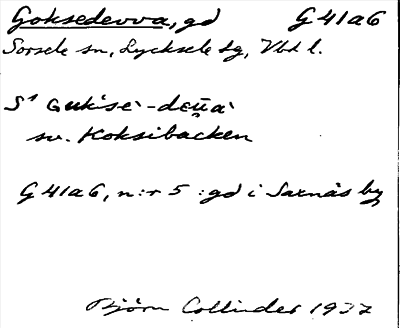 Goksedevva, gd G 41 a 6
Sorsele sn, Lycksele lg, Vbtn l.
S¹ Gukse`-deu̯a`
sv. Koksibacken
G 41 a 6, n:r 5 : gd i Saxnäs by
Björn Collinder 1937